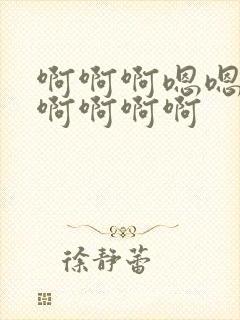 啊啊啊嗯嗯
啊啊啊啊
徐静蕾